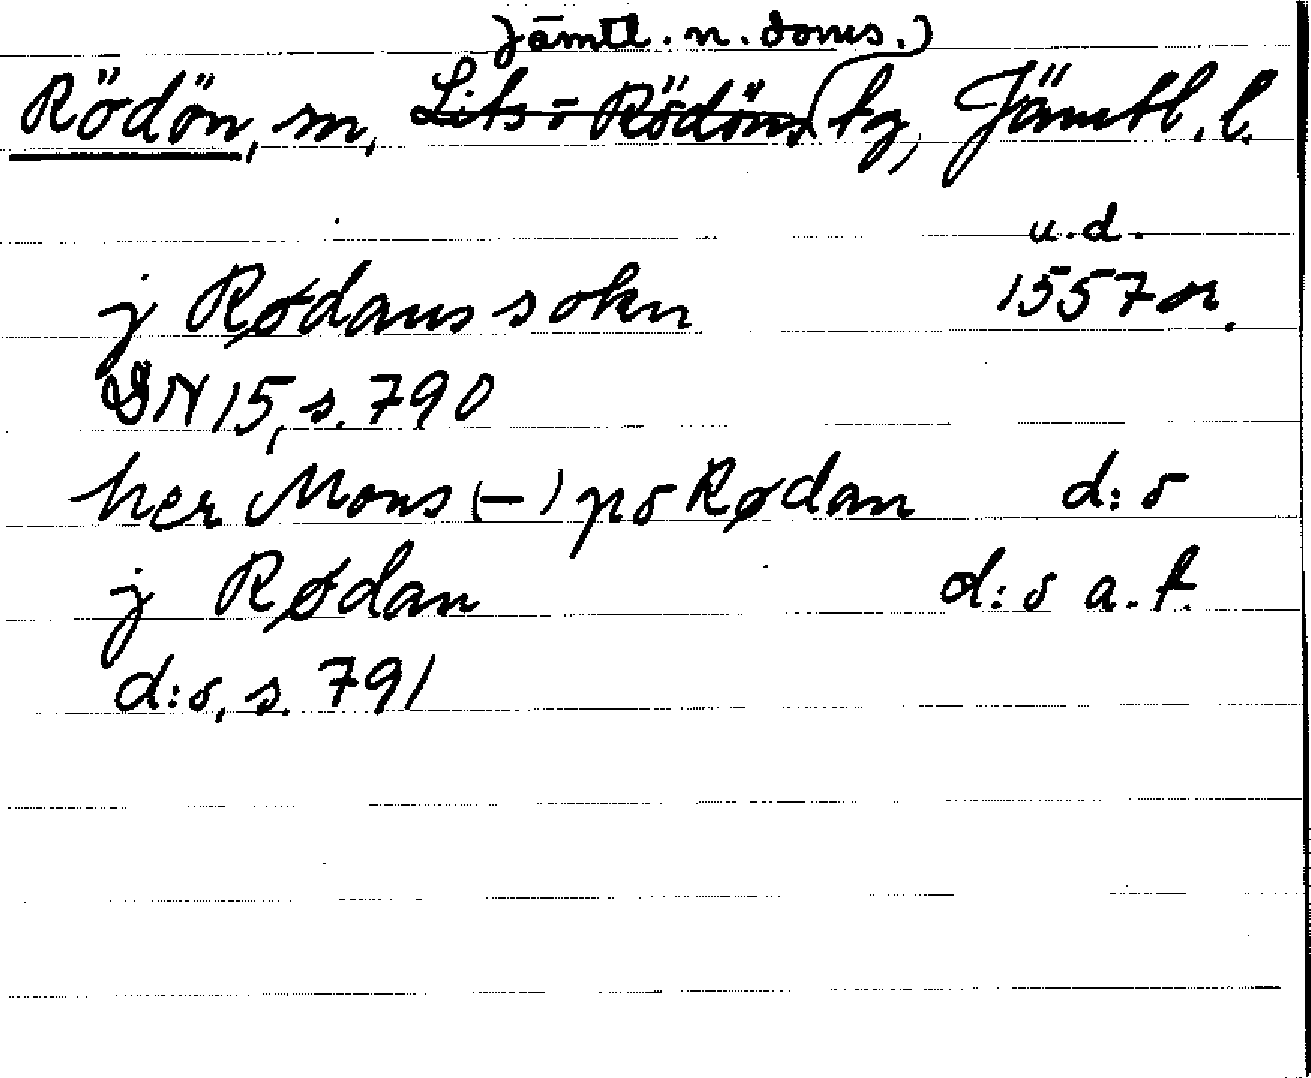 Jämtl. n. doms.)
Rödön, sn, Lits- o Rödöns tg, Jämtl. l.
u.d.
j Rødans sokn 1557 or.
DN 15, s. 790
her Mons (-) po Rødan d:o
j Rødan d:o a.t.
d:o, s. 791